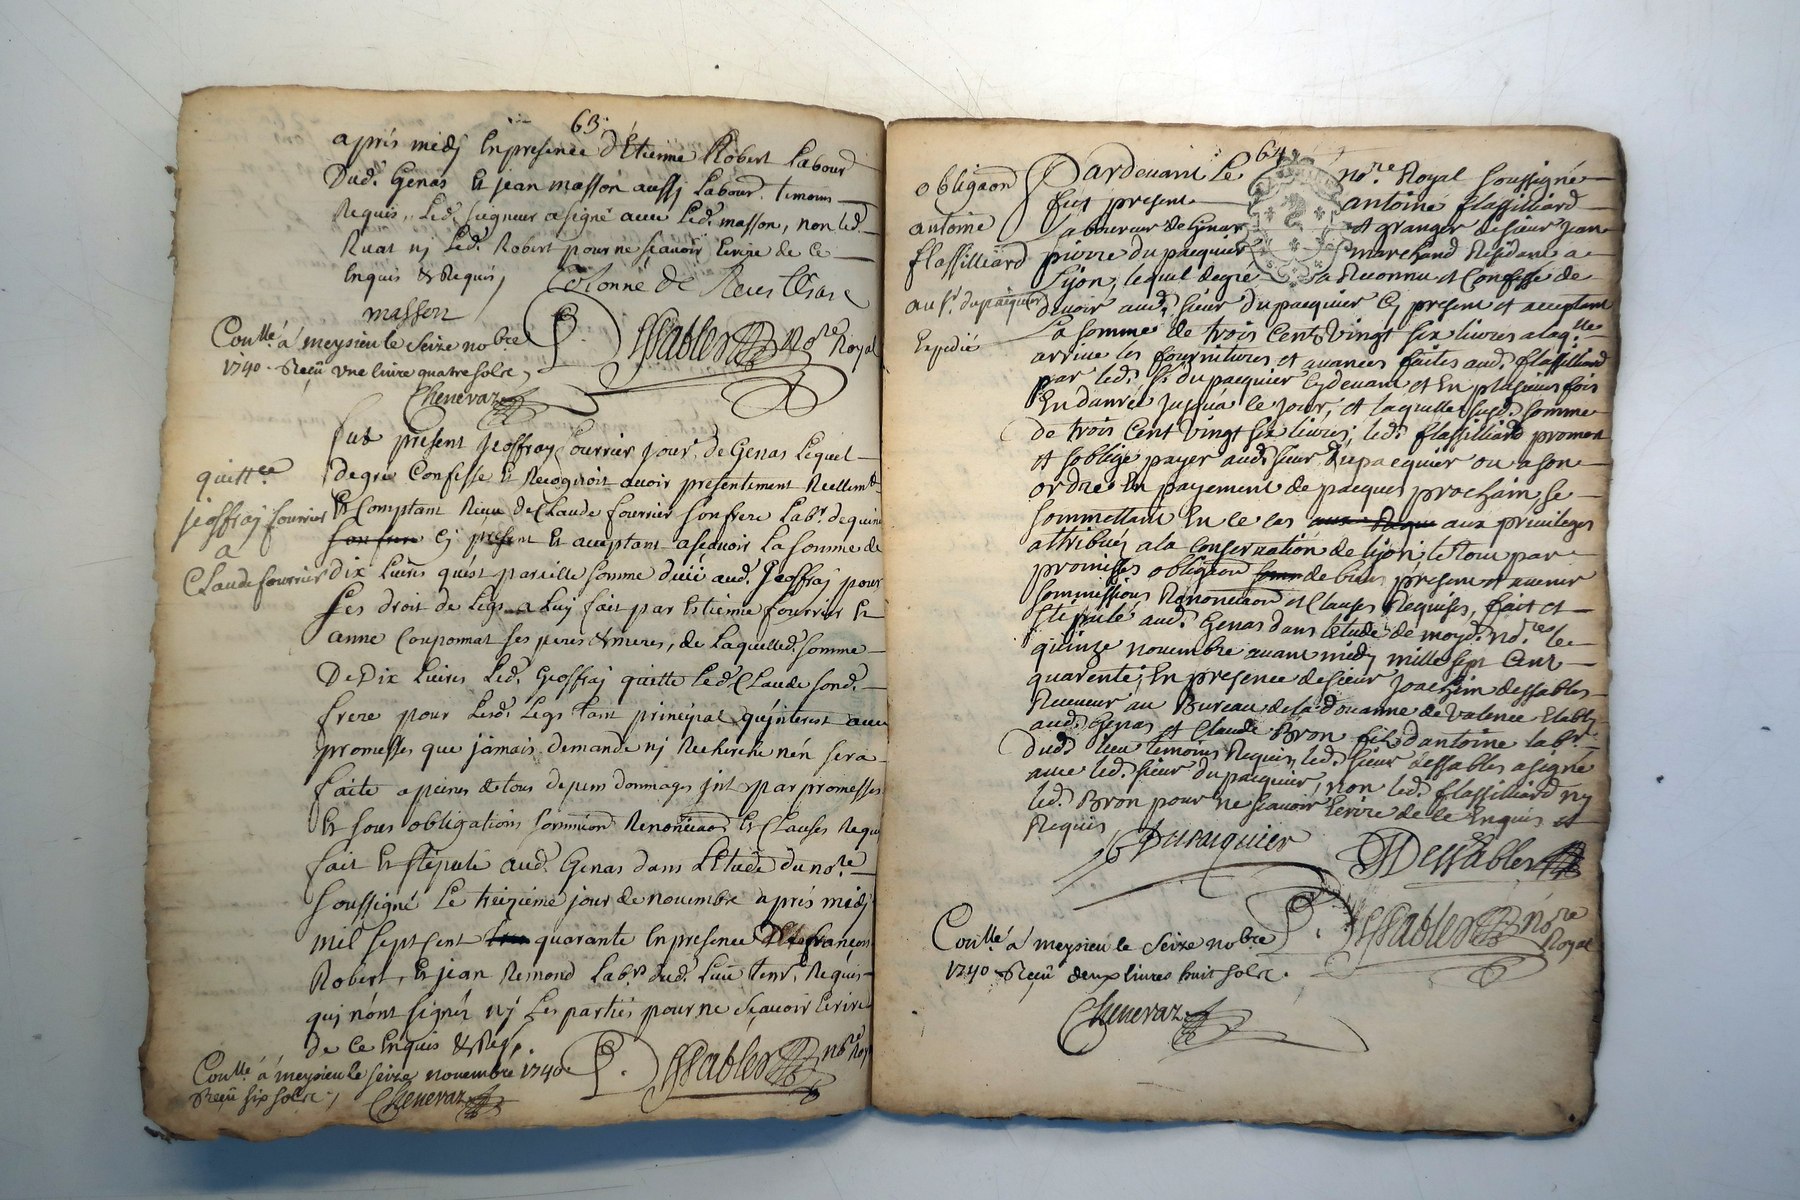 63.
après midj En presence d'Etienne Robert Labour
Dud. Genas Et jean masson aussj Labour. temoins
Requis, Led. seigneur a signé avec Led. masson, non led.
Ruat nj Led. Robert pour ne scavoir Ecrire de ce
Enquis & Requis,
masson
Conllé à meysieu le seize nobre
1740. Reçû une livre quatre sols
Chenevaz
P. DEssables Nore Royal
quittce
jeoffraj fourrier
a
Claude fourrier
fut present jeoffraj fourrier jour. de Genas Lequel
De gré Confesse Et Recognoit avoir presentement Reellemt
Et Comptant Reçu de Claude fourrier son frere Labr. de
son frere Cj present Et acceptant a scavoir La somme de
Dix Livres qu'est pareille somme düe aud. Jeoffraj pour
ses droit de Legs a Luj fait par Estienne fourrier Et
anne Couponnat ses peres & meres, de Laquelled. somme
De Dix Livres Led. Geoffraj quitte Led. Claude sond.
frere pour Lesd. Legs tant principal qu'interest avec
promesses que jamais demande nj Recherche n'en sera
faite a peines de tous depens dommages jnt par promesses
Et sous obligations sommiõns Renonciaõn Et Clauses Requ
fait Et stipulé aud. Genas dans L'Etude du nore
soussigné Le treizieme jour de novembre après midj
mil sept cent quarante En presence de françois
Robert, Et jean Remond Labrs dud. Lieu tems. Requis
quj n'ont signés nj Les parties pour ne scavoir Ecrire
de ce Enquis & Reqs,
Conllé à meysieu le seize novembre 1740
Reçû six sols,
Chenevaz
P. DEssables nore Roy
64
obligaõn
antoine
flassilliard
au sr. dupacquier
Expedié
Pardevant Le nore. Royal soussigné
fut present antoine flassilliard
Laboureur de Genas et granger de sieur Jean
pierre du pacquier marchand Residant a
Lyon, lequel de gré a Reconnu et Confessé de
devoir aud. sieur du pacquier Cj present et acceptant
La somme de trois Cent vingt six livres a laqlle
arrive les fournitures et avances faites aud. flassilliard
par led. sr. du pacquier Cydevant et En plusieurs fois
En danrée jusqu'a le jour, et laquelle susd. somme
de trois Cent vingt six livres, led. flassilliard promet
et s'oblige payer aud. sieur Dupacquier ou a son
ordre En payement de pacques prochain se
sommettant En ce Cas aux privileges
attribués a la Conservation de lyon, le tout par
promesses obligõn de biens present et avenir
sommissions Renonciaõn et Clauses Requises, fait et
stipulé aud. Genas dans l'Etude de moyd. nore. le
quinze novembre avant midy mille sept Cent
quarente, En presence de sieur Joachim dessables
Receveur au Bureau de la doüanne de valence Etably
aud. Genas et Claude Bron fils d'antoine labr.
dud. lieu temoins Requis, led. sieur dessables a signé
avec led. sieur du pacquier, non led. flassilliard ny
led. Bron pour ne scavoir Ecrire de ce Enquis et
Requis
Dupacquier
JDessables
P. DEssables nore Royal
Conllé à meysieu le seize nobre
1740 Reçû deux livres huit sols.
Chenevaz